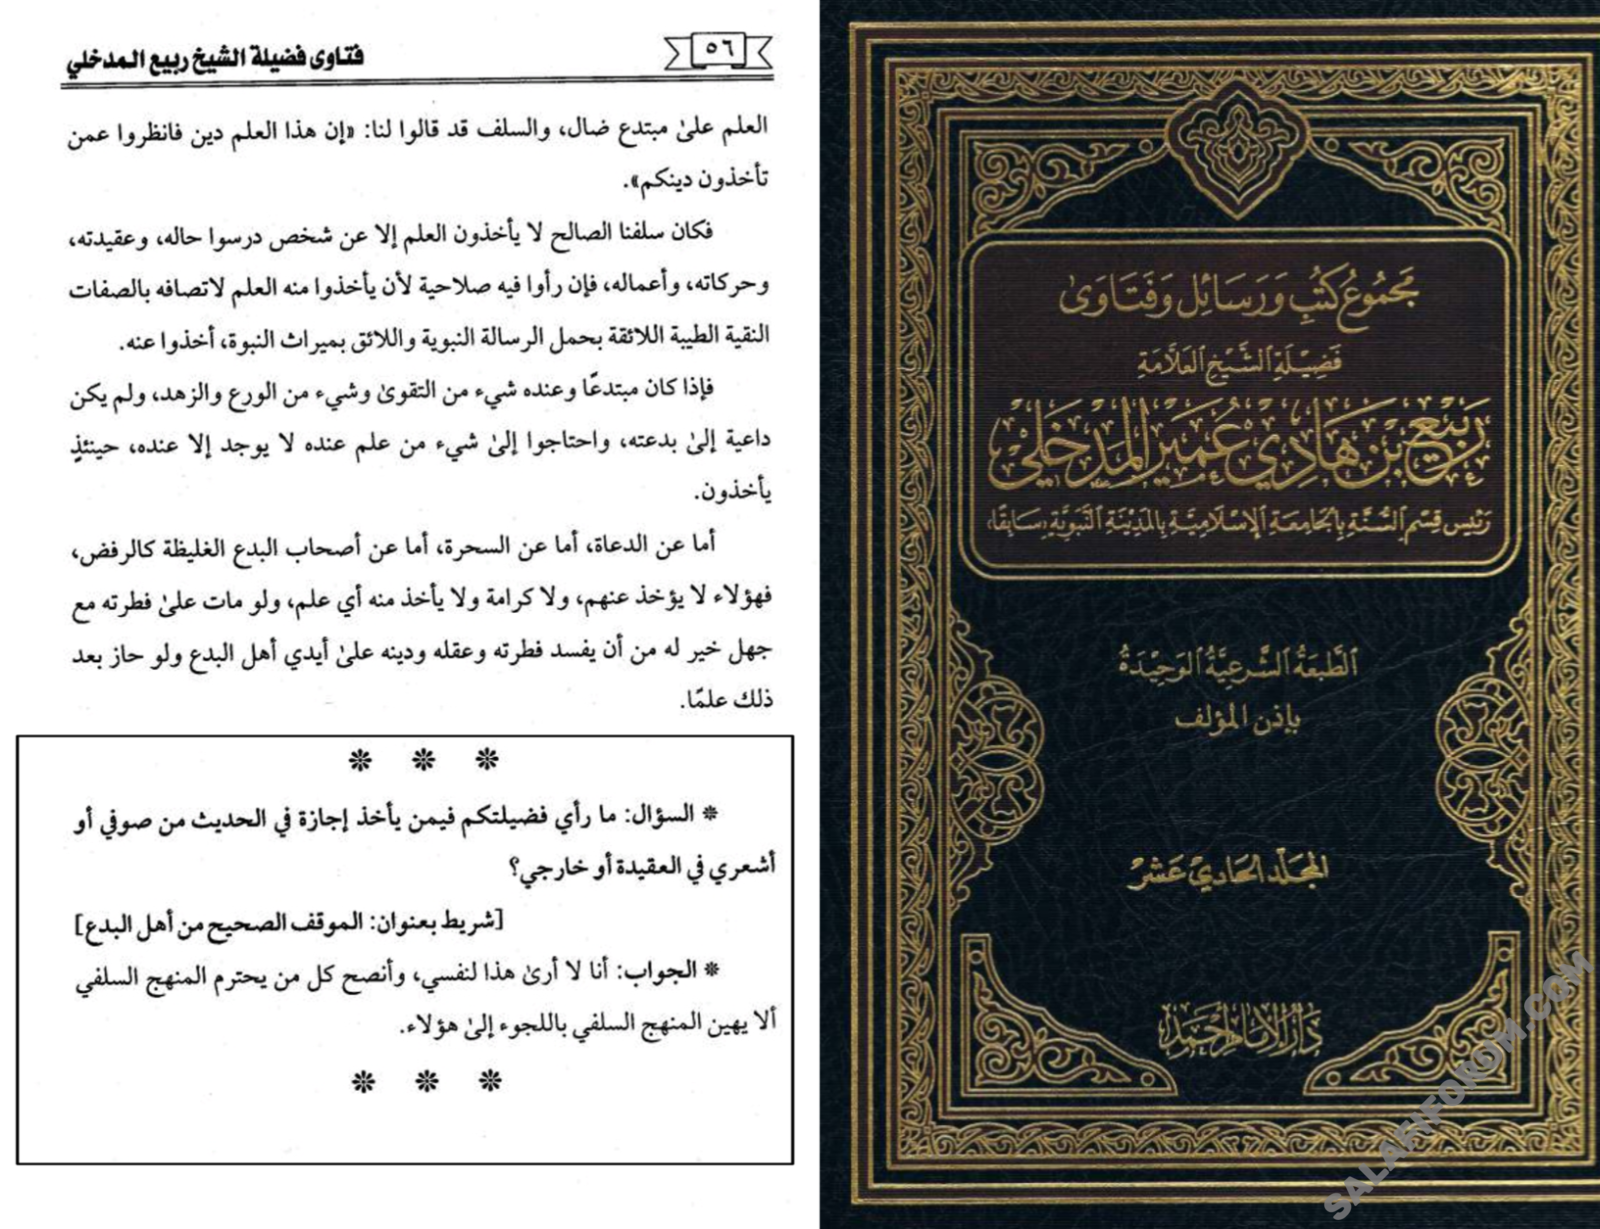 ٥٦
فتاوى فضيلة الشيخ ربيع المدخلي
العلم علىٰ مبتدع ضال، والسلف قد قالوا لنا: «إن هذا العلم دين فانظروا عمن
تأخذون دينكم».
فكان سلفنا الصالح لا يأخذون العلم إلا عن شخص درسوا حاله، وعقيدته،
وحركاته، وأعماله، فإن رأوا فيه صلاحية لأن يأخذوا منه العلم لاتصافه بالصفات
النقية الطيبة اللائقة بحمل الرسالة النبوية واللائق بميراث النبوة، أخذوا عنه.
فإذا كان مبتدعًا وعنده شيء من التقوىٰ وشيء من الورع والزهد، ولم يكن
داعية إلىٰ بدعته، واحتاجوا إلىٰ شيء من علم عنده لا يوجد إلا عنده، حينئذٍ
يأخذون.
أما عن الدعاة، أما عن السحرة، أما عن أصحاب البدع الغليظة كالرفض،
فهؤلاء لا يؤخذ عنهم، ولا كرامة ولا يأخذ منه أي علم، ولو مات علىٰ فطرته مع
جهل خير له من أن يفسد فطرته وعقله ودينه علىٰ أيدي أهل البدع ولو حاز بعد
ذلك علمًا.
* السؤال: ما رأي فضيلتكم فيمن يأخذ إجازة في الحديث من صوفي أو
أشعري في العقيدة أو خارجي؟
[شريط بعنوان: الموقف الصحيح من أهل البدع]
* الجواب: أنا لا أرىٰ هذا لنفسي، وأنصح كل من يحترم المنهج السلفي
ألا يهين المنهج السلفي باللجوء إلىٰ هؤلاء.
مَجمُوعُ كتُبِ وَرَسَائِل وَفَتَاوىٰ
فَضِيْلَةِ الشَّيْخِ العَلَّامَةِ
رَبيْع بنْ هَادِي عُمَيْر المَدخَلي
رَئيْس قِسْم السُّنَّةِ بِالجَامعَةِ الإِسْلَاميَّةِ بِالمَدِيْنَةِ النَّبَويَّةِ (سَابِقًا)
الطَّبعَةُ الشَّرعِيَّةُ الوَحِيْدَةُ
بإذن المؤلف
المجَلّد الحَادِي عَشَر
دَارُ الإِمَام أَحْمَد
SALAFIFORUM.COM